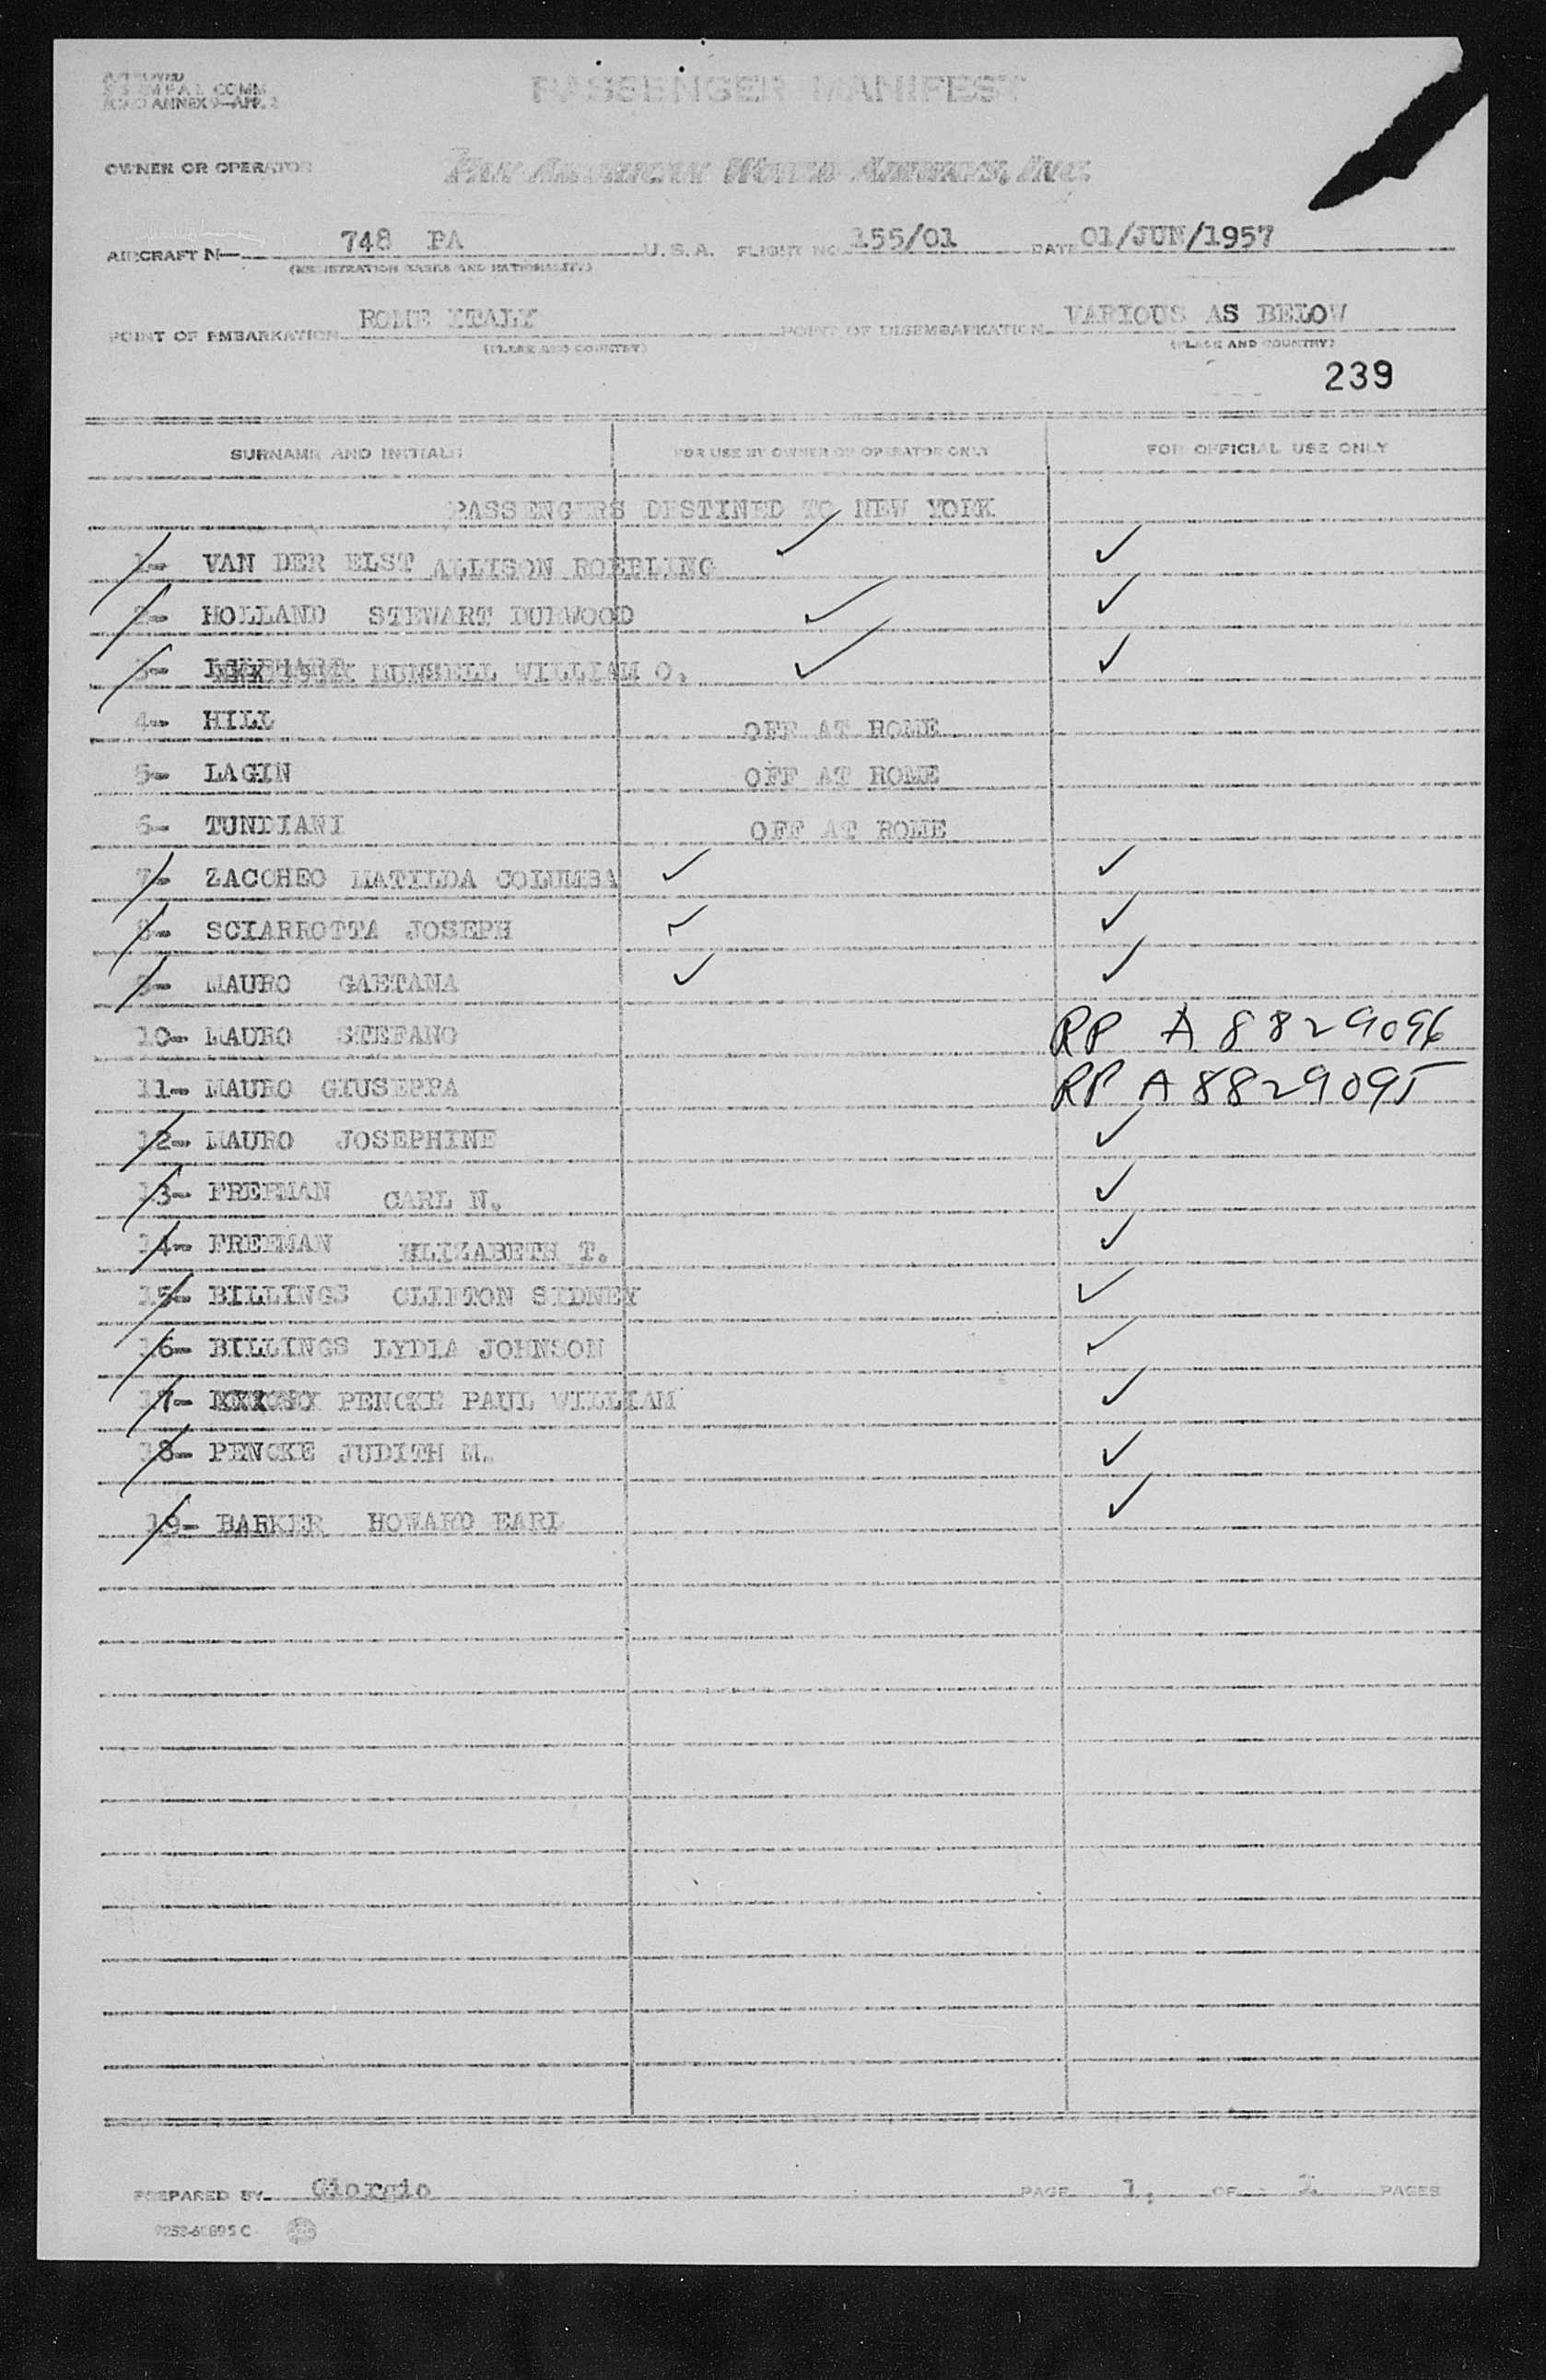 PASSENGER MANIFEST
ANNEX 9—APP. 2
OWNER OR OPERATOR PAN AMERICAN WORLD AIRWAYS, INC.
AIRCRAFT N— 748 PA U.S.A. FLIGHT NO. 155/01 DATE 01/JUN/1957
(REGISTRATION MARKS AND NATIONALITY)
POINT OF EMBARKATION ROME ITALY POINT OF DISEMBARKATION VARIOUS AS BELOW
(PLACE AND COUNTRY) (PLACE AND COUNTRY)
239
SURNAME AND INITIALS FOR USE BY OWNER OR OPERATOR ONLY FOR OFFICIAL USE ONLY
PASSENGERS DESTINED TO NEW YORK
1- VAN DER ELST ALLISON ROEBLING ✓ ✓
2- HOLLAND STEWART DURWOOD ✓ ✓
3- MUNSELL WILLIAM O. ✓ ✓
4- HILL OFF AT ROME
5- LAGIN OFF AT ROME
6- TUNDIANI OFF AT ROME
7- ZACCHEO MATILDA COLUMBA ✓ ✓
8- SCIARROTTA JOSEPH ✓ ✓
9- MAURO GAETANA ✓ ✓
10- MAURO STEFANO RP A 8829096
11- MAURO GIUSEPPA RP A8829095
12- MAURO JOSEPHINE ✓
13- FREEMAN CARL N. ✓
14- FREEMAN ELIZABETH T. ✓
15- BILLINGS CLIFTON SIDNEY ✓
16- BILLINGS LYDIA JOHNSON ✓
17- PENCKE PAUL WILLIAM ✓
18- PENCKE JUDITH M. ✓
19- BARKER HOWARD EARL ✓
PREPARED BY Giorgio PAGE 1. OF 2 PAGES